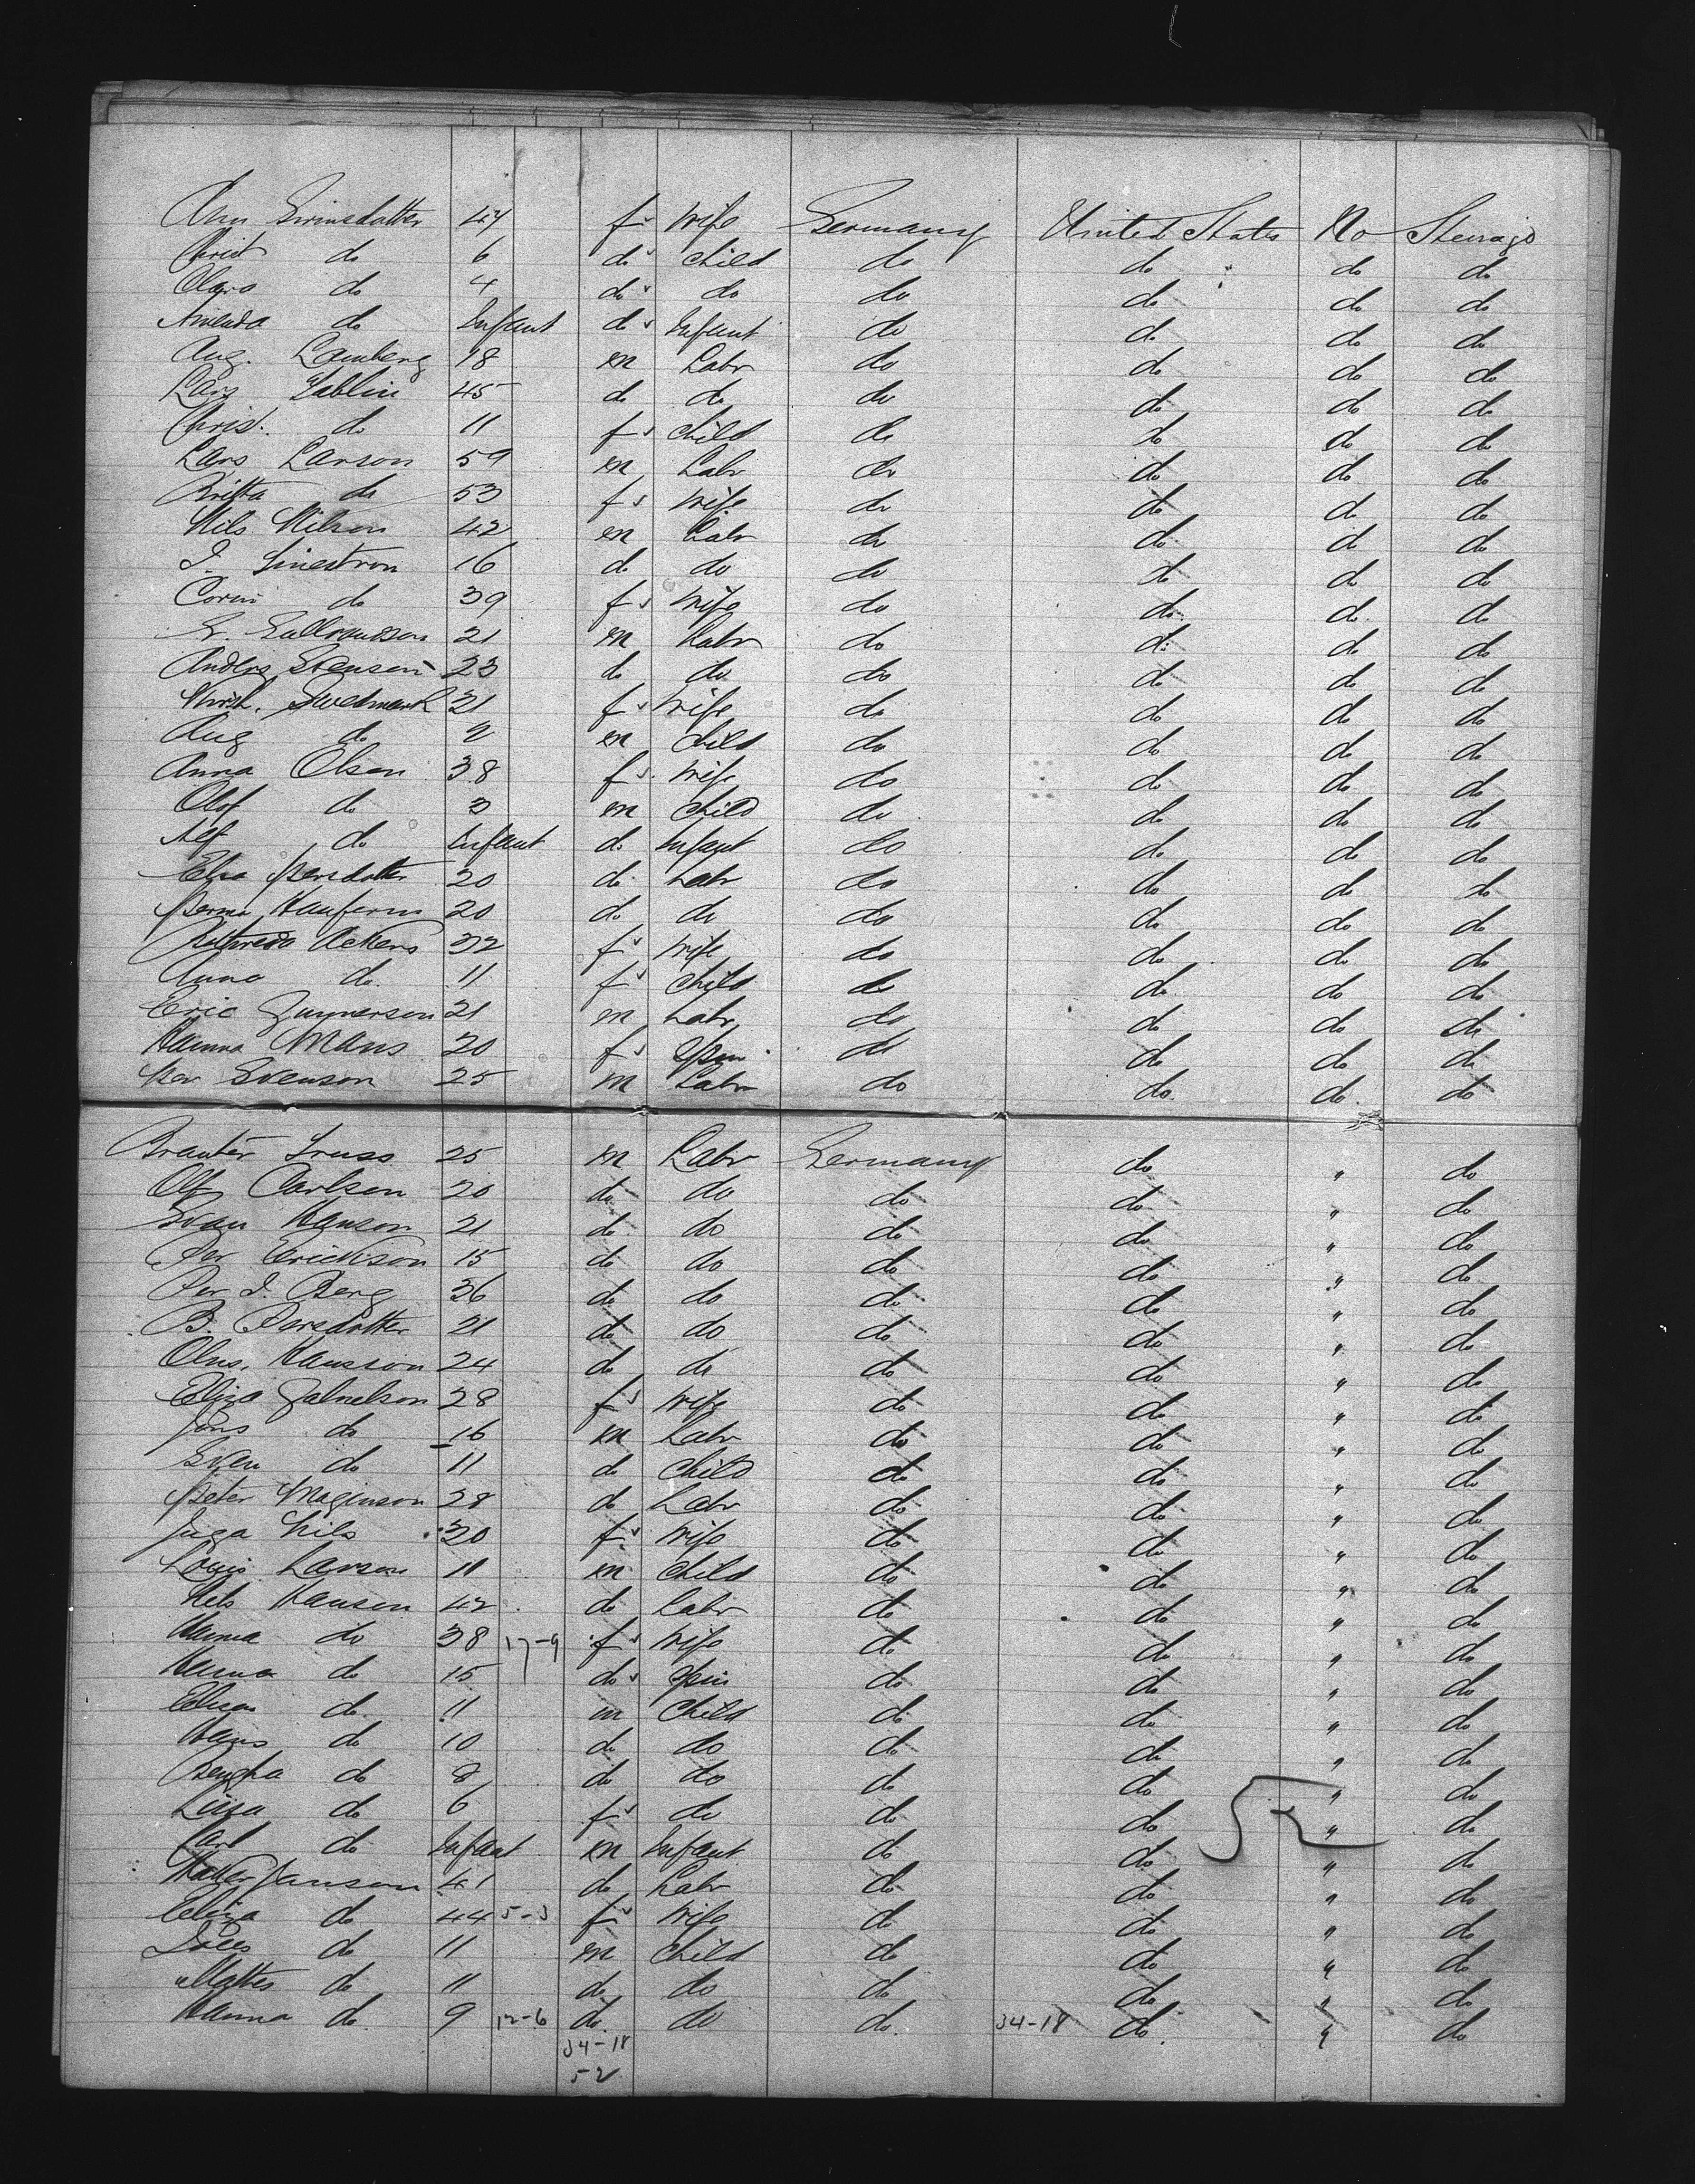 Ann Swinsdatter 47 f wife Germany United States No Steerage
Christ do 6 do child do do do do
Clara do 4 do do do do do do
Amenda do Infant do Infant do do do do
Aug. Lamberg 18 m Labr do do do do
Lars 45 do do do do do do
Christ. do 11 f child do do do do
Lars Larson 59 m Labr do do do do
Britta do 53 f wife do do do do
Nils Nilson 42 m Labr do do do do
J. Linestrom 16 do do do do do do
do 39 f wife do do do do
21 m Labr do do do do
Anders Svenson 23 do do do do do do
21 f wife do do do do
Aug do 2 m child do do do do
Anna Olsen 38 f wife do do do do
Olof do 3 m child do do do do
Alf do Infant do Infant do do do do
Elsa Persdotter 20 do Labr do do do do
20 do do do do do do
Ackers 32 f wife do do do do
Anna do 11 f child do do do do
Eric Gunnerson 21 m Labr do do do do
Hanna Mans 20 f Spin do do do do
Per Svenson 25 m Labr do do do do
Truss 25 m Labr Germany do " do
Olf Carlson 20 do do do do " do
Svan Hanson 21 do do do do " do
Per Erickson 15 do do do do " do
Per J. Berg 36 do do do do " do
B. Persdotter 21 do do do do " do
Olns. Hansson 24 do do do do " do
Eliza 28 f wife do do " do
Jons do 16 m Labr do do " do
Sven do 11 do child do do " do
Peter Maginson 28 do Labr do do " do
Inga Nils 20 f wife do do " do
Louis Larson 11 m child do do " do
Nels Hanson 42 do Labr do do " do
Hanna do 38 17-9 f wife do do " do
Hanna do 15 do Spin do do " do
do 11 m child do do " do
Hans do 10 do do do do " do
Bengta do 8 do do do do " do
Lisa do 6 f do do do " do
52
Carl do Infant m Infant do do " do
Janson 41 do Labr do do " do
Eliza do 44 5-3 f wife do do " do
do 11 m child do do " do
Mattes do 11 do do do do " do
Hanna do 9 12-6 do do do 34-18 do " do
34-18
52